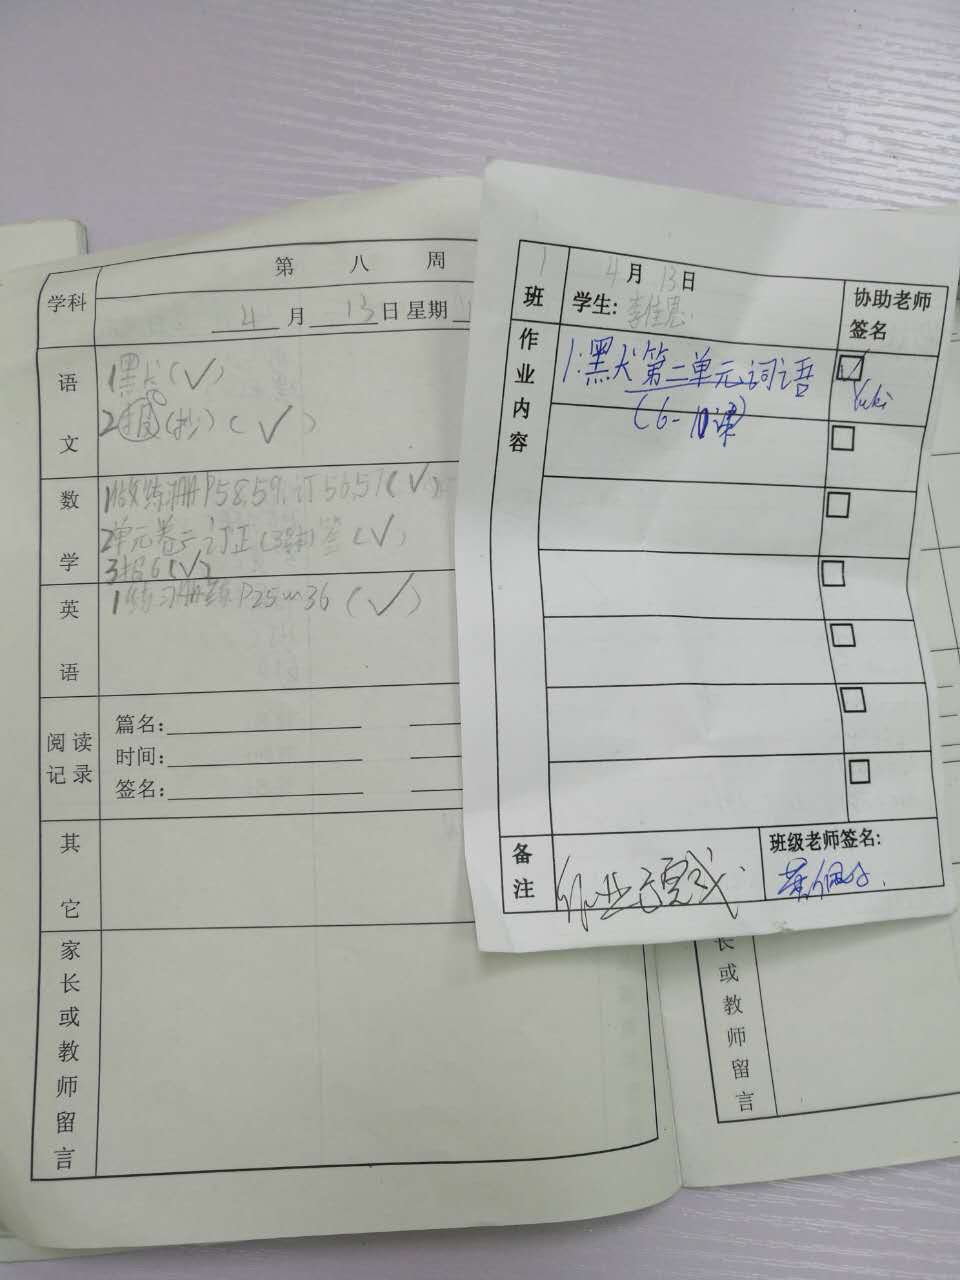 学科
第 八 周
4 月 13 日 星期
语文
1黑犬(✓)
2报(抄)(✓)
数学
1做练习册P58.59.订56.57(✓)
2单元卷 订正 签(✓)
3报6(✓)
英语
1练习册 P25~36(✓)
阅读记录
篇名:
时间:
签名:
其它
家长或教师留言
1班
4月13日
学生:李佳恩
协助老师签名
作业内容
1.黑犬第二单元词语
(6-10课)
Yuki
备注
作业完成.
班级老师签名:
长或教师留言